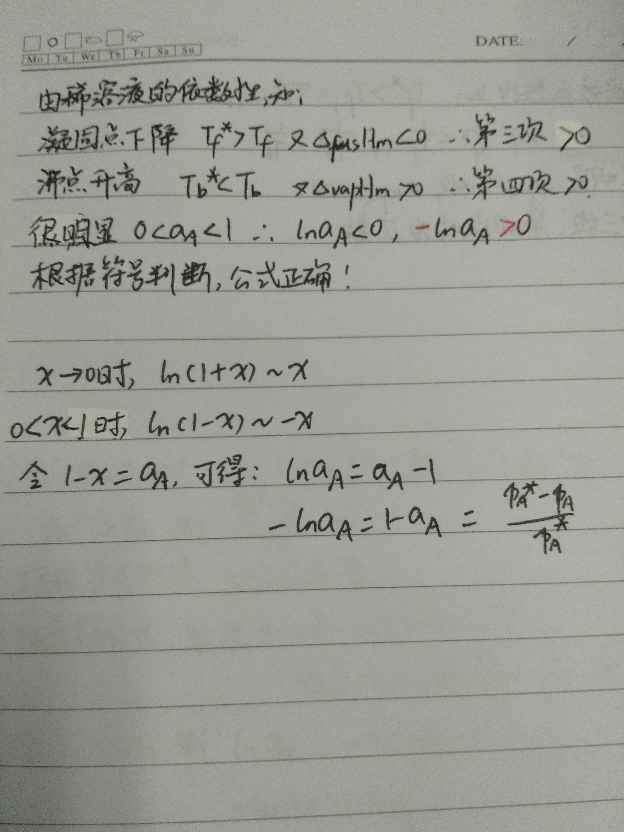 DATE: /
Mo Tu We Th Fr Sa Su
由稀溶液的依数性,知:
凝固点下降 Tf*>Tf 又ΔfusHm<0 ∴第三项 >0
沸点升高 Tb*<Tb 又ΔvapHm>0 ∴第四项 >0.
很明显 0<aA<1 ∴ lnaA<0, -lnaA>0
根据符号判断,公式正确!
x→0时, ln(1+x)~x
0<x<1时, ln(1-x)~-x
令 1-x=aA, 可得: lnaA=aA-1
-lnaA=1-aA = (pA*-pA)/pA*